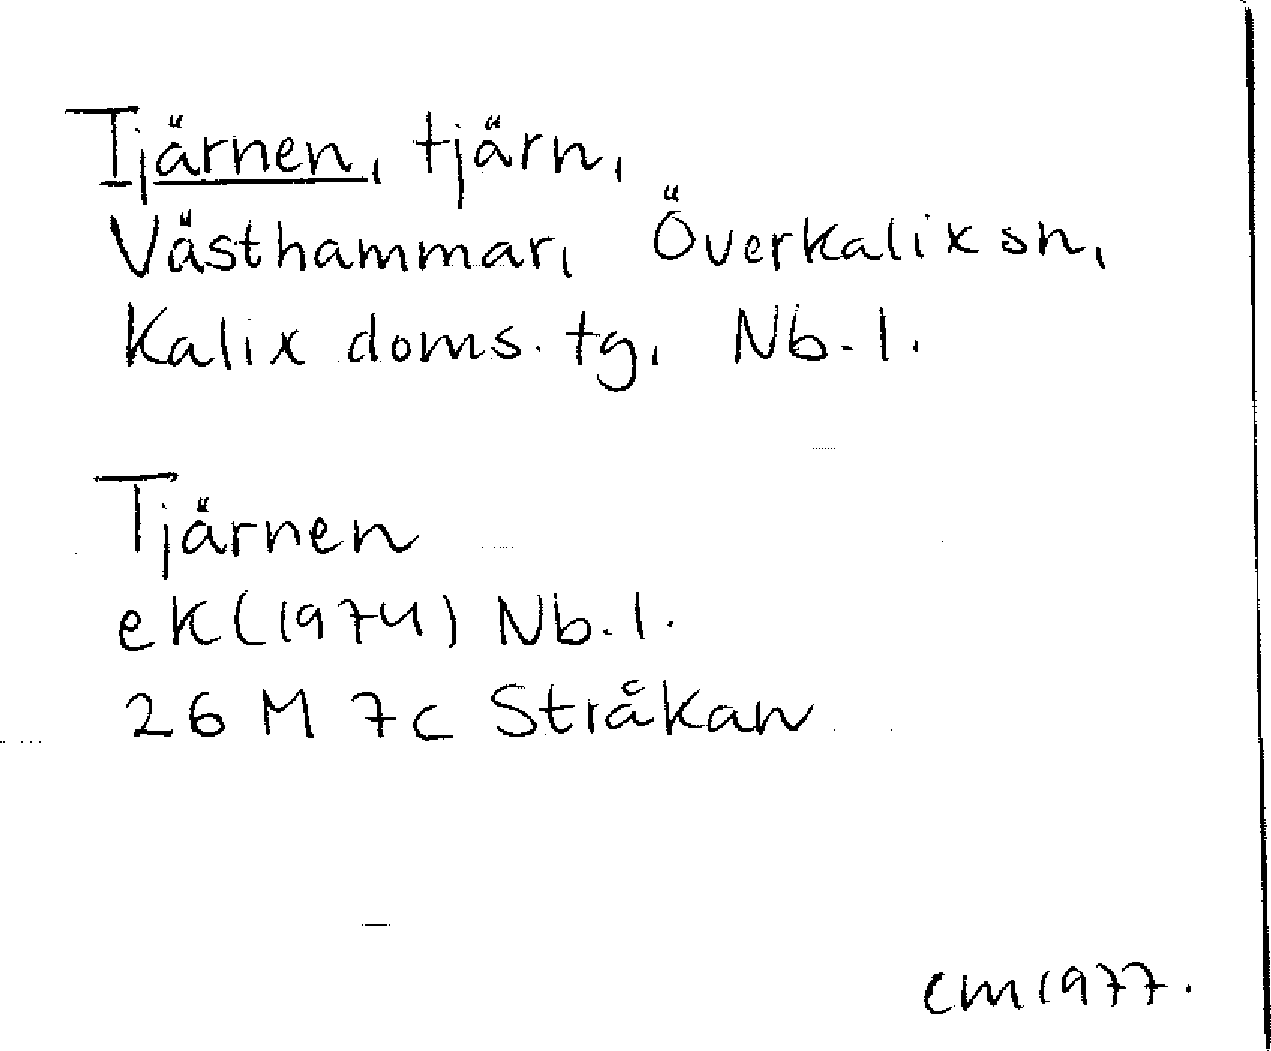 Tjärnen, tjärn,
Västhammar, Överkalix sn,
Kalix doms. tg, Nb. l.
Tjärnen
ek (1974) Nb. l.
26 M 7c Stråkan
CM 1977.